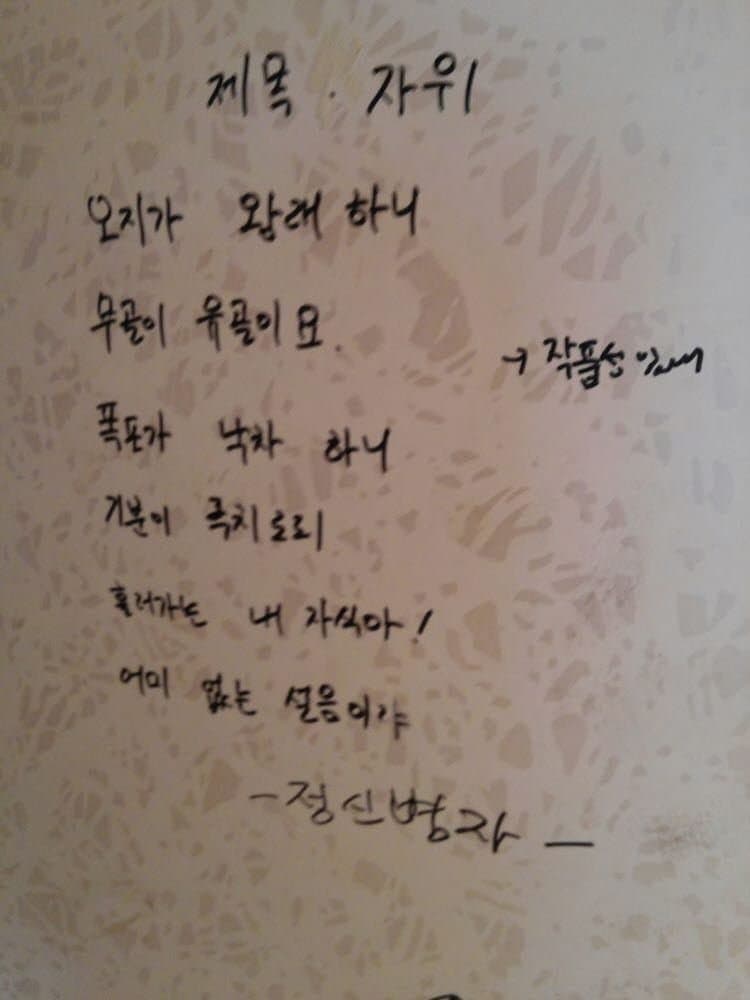 제목. 자위
오지가 왕래 하니
무골이 유골이요.
→ 작품성 있네
폭포가 낙차 하니
기분이 극치로리
흘러가는 내 자식아!
어미 없는 설음이랴
- 정신병자 -